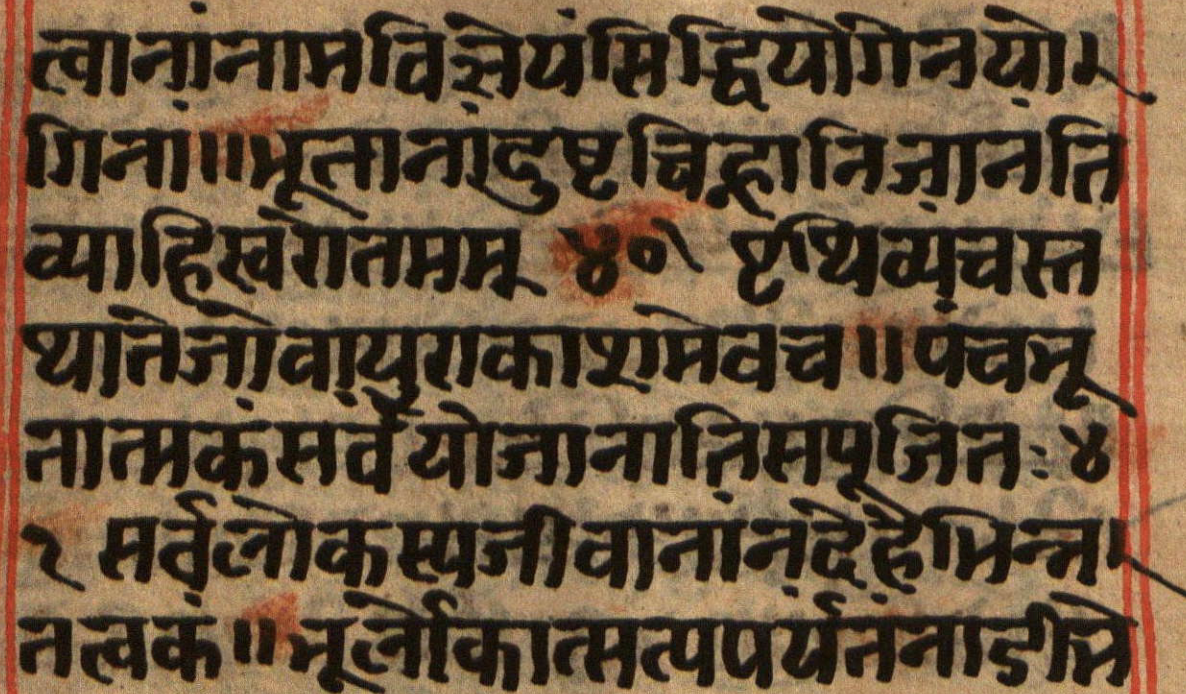 त्वानांनामविज्ञेयंसिद्धियोगेनयो
गिना॥भूतानांदुष्टचिह्नानिजानति
व्याहिस्वरोतमम् ४० पृथिव्यचस्त
थातेजोवायुराकाशमेवच॥पंचभू
तात्मकंसर्वेयोजानातिसपूजितः ४
१ सर्वलोकस्यजीवानांनदेहेभिन्न
तत्वक॥भूर्लोकात्सत्यपर्यतनाडीभे